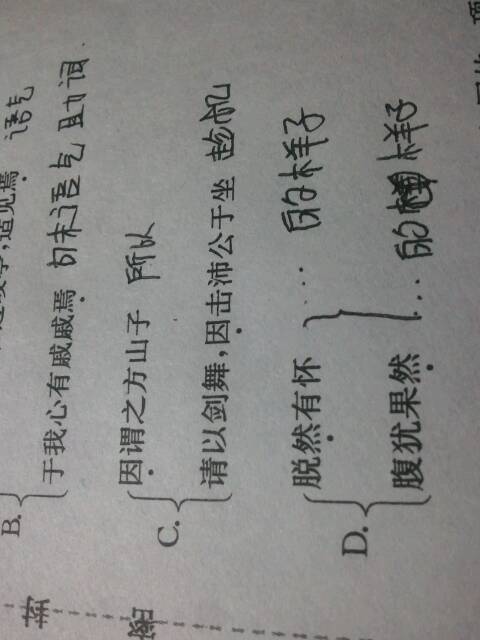 适见焉 语气
B. 于我心有戚戚焉 句末语气助词.
因谓之方山子 所以
C.
请以剑舞,因击沛公于坐 趁机
脱然有怀 … 的样子
D.
腹犹果然 … 的样子